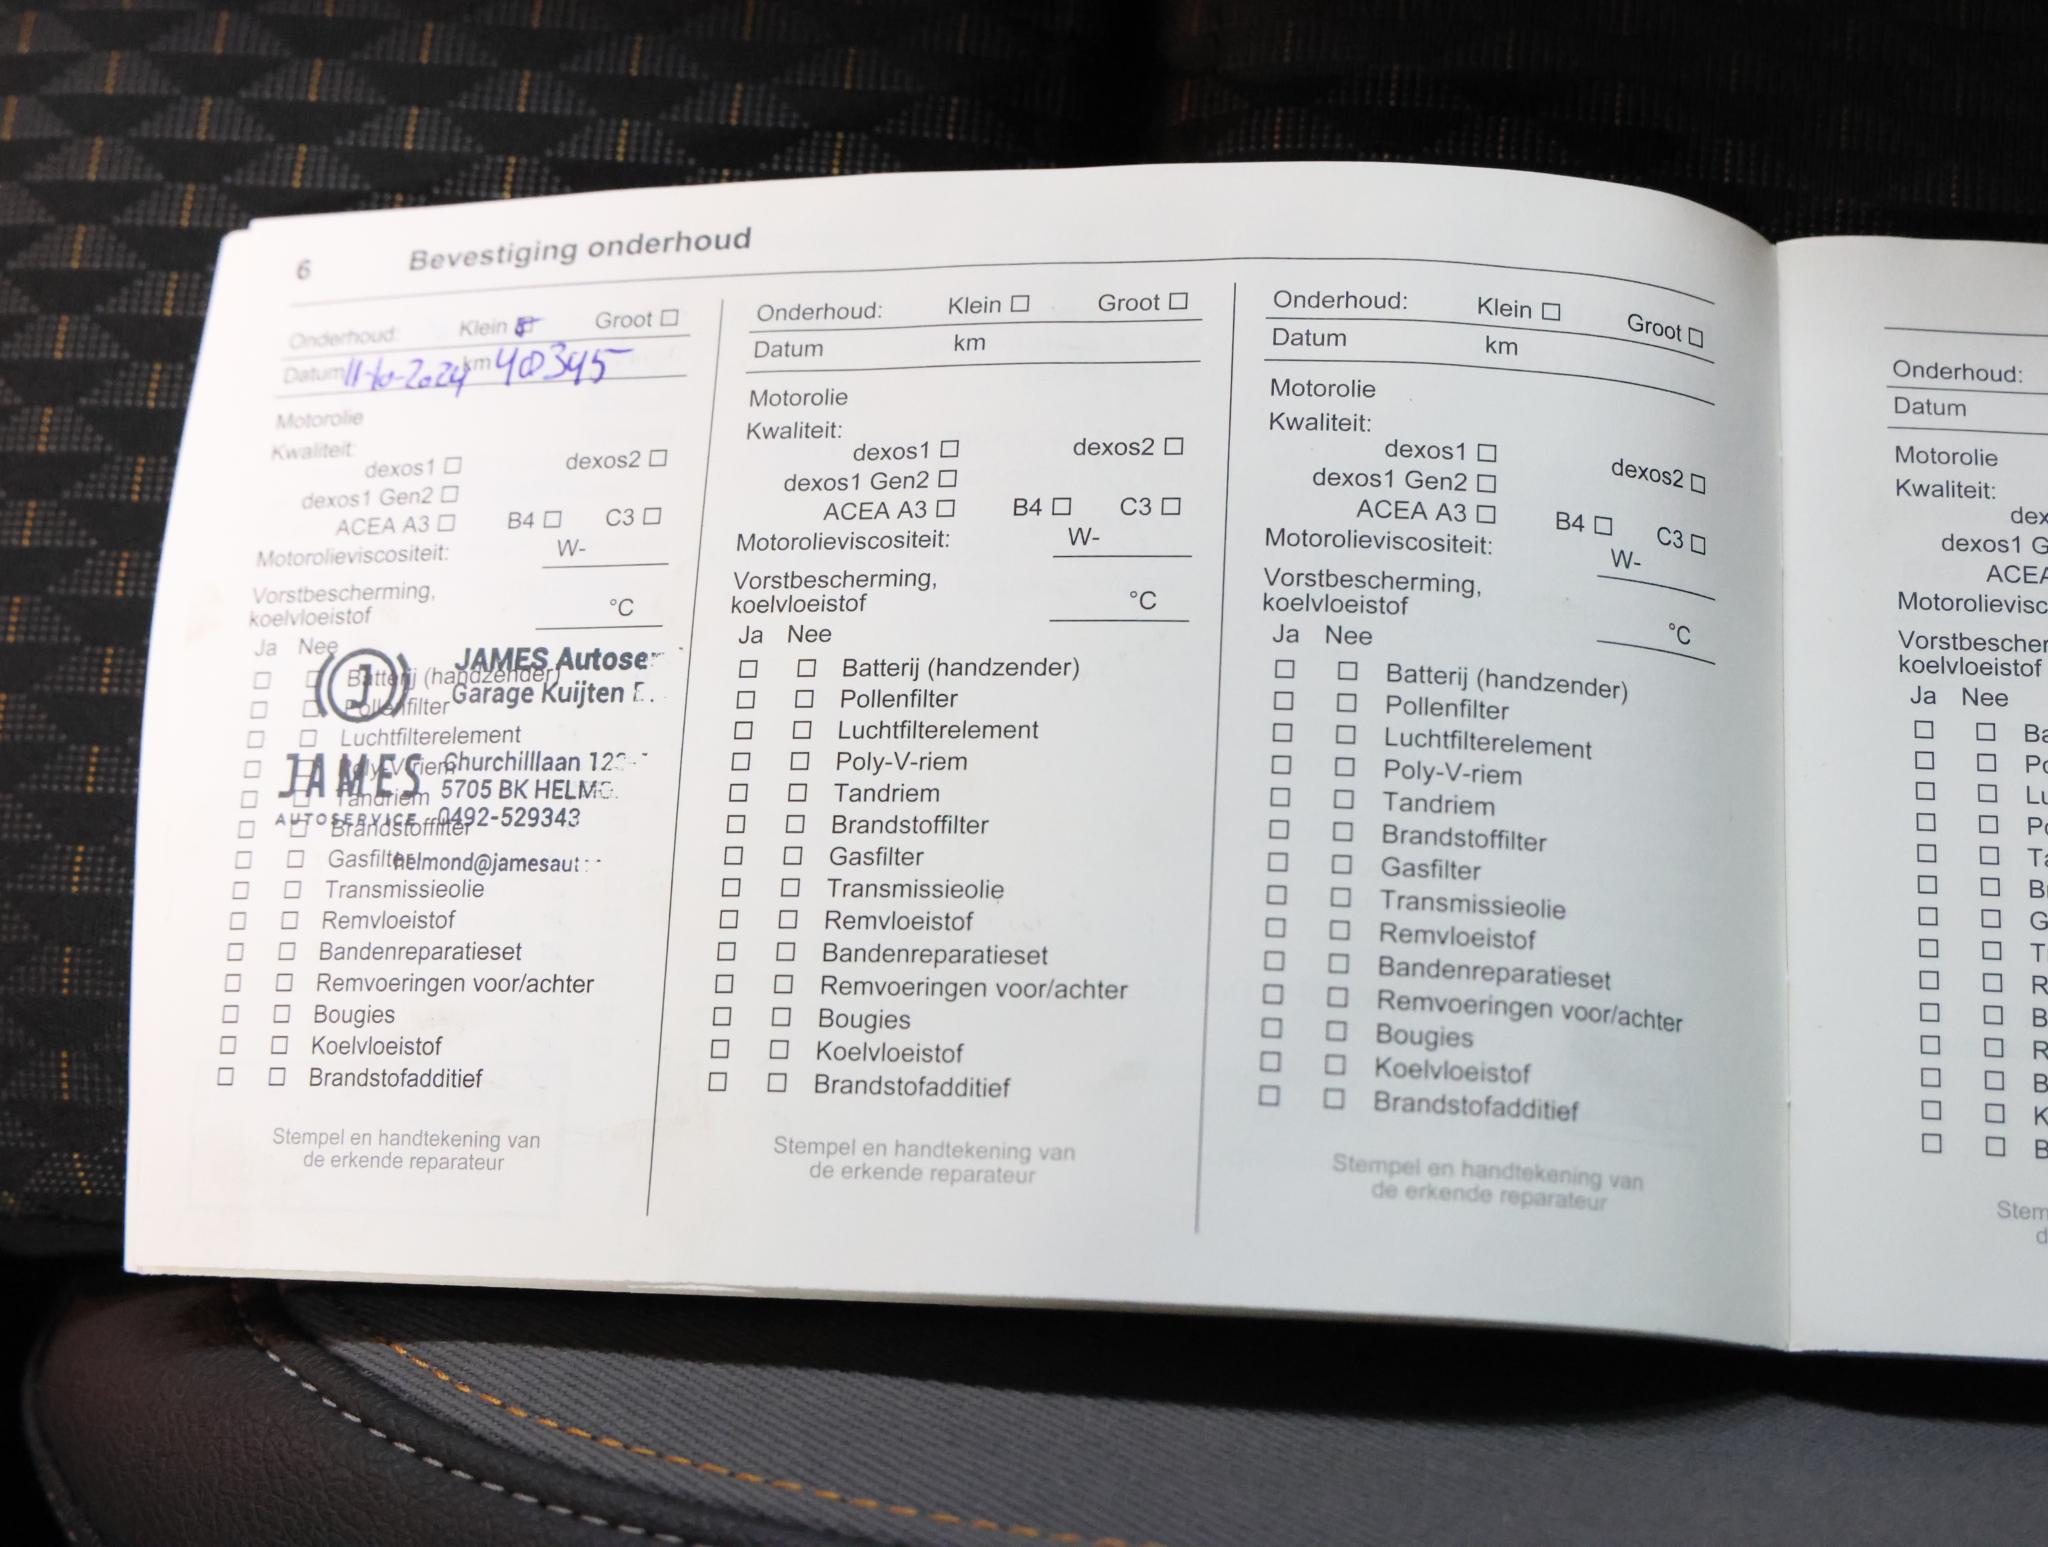 6 Bevestiging onderhoud
Onderhoud: Klein Groot
Datum 11-10-2024 km 40395
Motorolie
Kwaliteit:
dexos1 dexos2
dexos1 Gen2
ACEA A3 B4 C3
Motorolieviscositeit: W-
Vorstbescherming,
koelvloeistof °C
Ja Nee
Batterij (handzender)
Pollenfilter
Luchtfilterelement
Poly-V-riem
Tandriem
Brandstoffilter
Gasfilter
Transmissieolie
Remvloeistof
Bandenreparatieset
Remvoeringen voor/achter
Bougies
Koelvloeistof
Brandstofadditief
Stempel en handtekening van
de erkende reparateur
J
JAMES
AUTOSERVICE
JAMES Autose
Garage Kuijten
Churchilllaan
5705 BK HELM
0492-529343
helmond@jamesaut
Onderhoud: Klein Groot
Datum km
Motorolie
Kwaliteit:
dexos1 dexos2
dexos1 Gen2
ACEA A3 B4 C3
Motorolieviscositeit: W-
Vorstbescherming,
koelvloeistof °C
Ja Nee
Batterij (handzender)
Pollenfilter
Luchtfilterelement
Poly-V-riem
Tandriem
Brandstoffilter
Gasfilter
Transmissieolie
Remvloeistof
Bandenreparatieset
Remvoeringen voor/achter
Bougies
Koelvloeistof
Brandstofadditief
Stempel en handtekening van
de erkende reparateur
Onderhoud: Klein Groot
Datum km
Motorolie
Kwaliteit:
dexos1 dexos2
dexos1 Gen2
ACEA A3 B4 C3
Motorolieviscositeit: W-
Vorstbescherming,
koelvloeistof °C
Ja Nee
Batterij (handzender)
Pollenfilter
Luchtfilterelement
Poly-V-riem
Tandriem
Brandstoffilter
Gasfilter
Transmissieolie
Remvloeistof
Bandenreparatieset
Remvoeringen voor/achter
Bougies
Koelvloeistof
Brandstofadditief
Stempel en handtekening van
de erkende reparateur
Onderhoud:
Datum
Motorolie
Kwaliteit:
dex
dexos1 G
ACEA
Motorolievisc
Vorstbescher
koelvloeistof
Ja Nee
Ba
Po
Lu
Po
Ta
Br
G
T
R
B
R
B
K
B
Stem
d